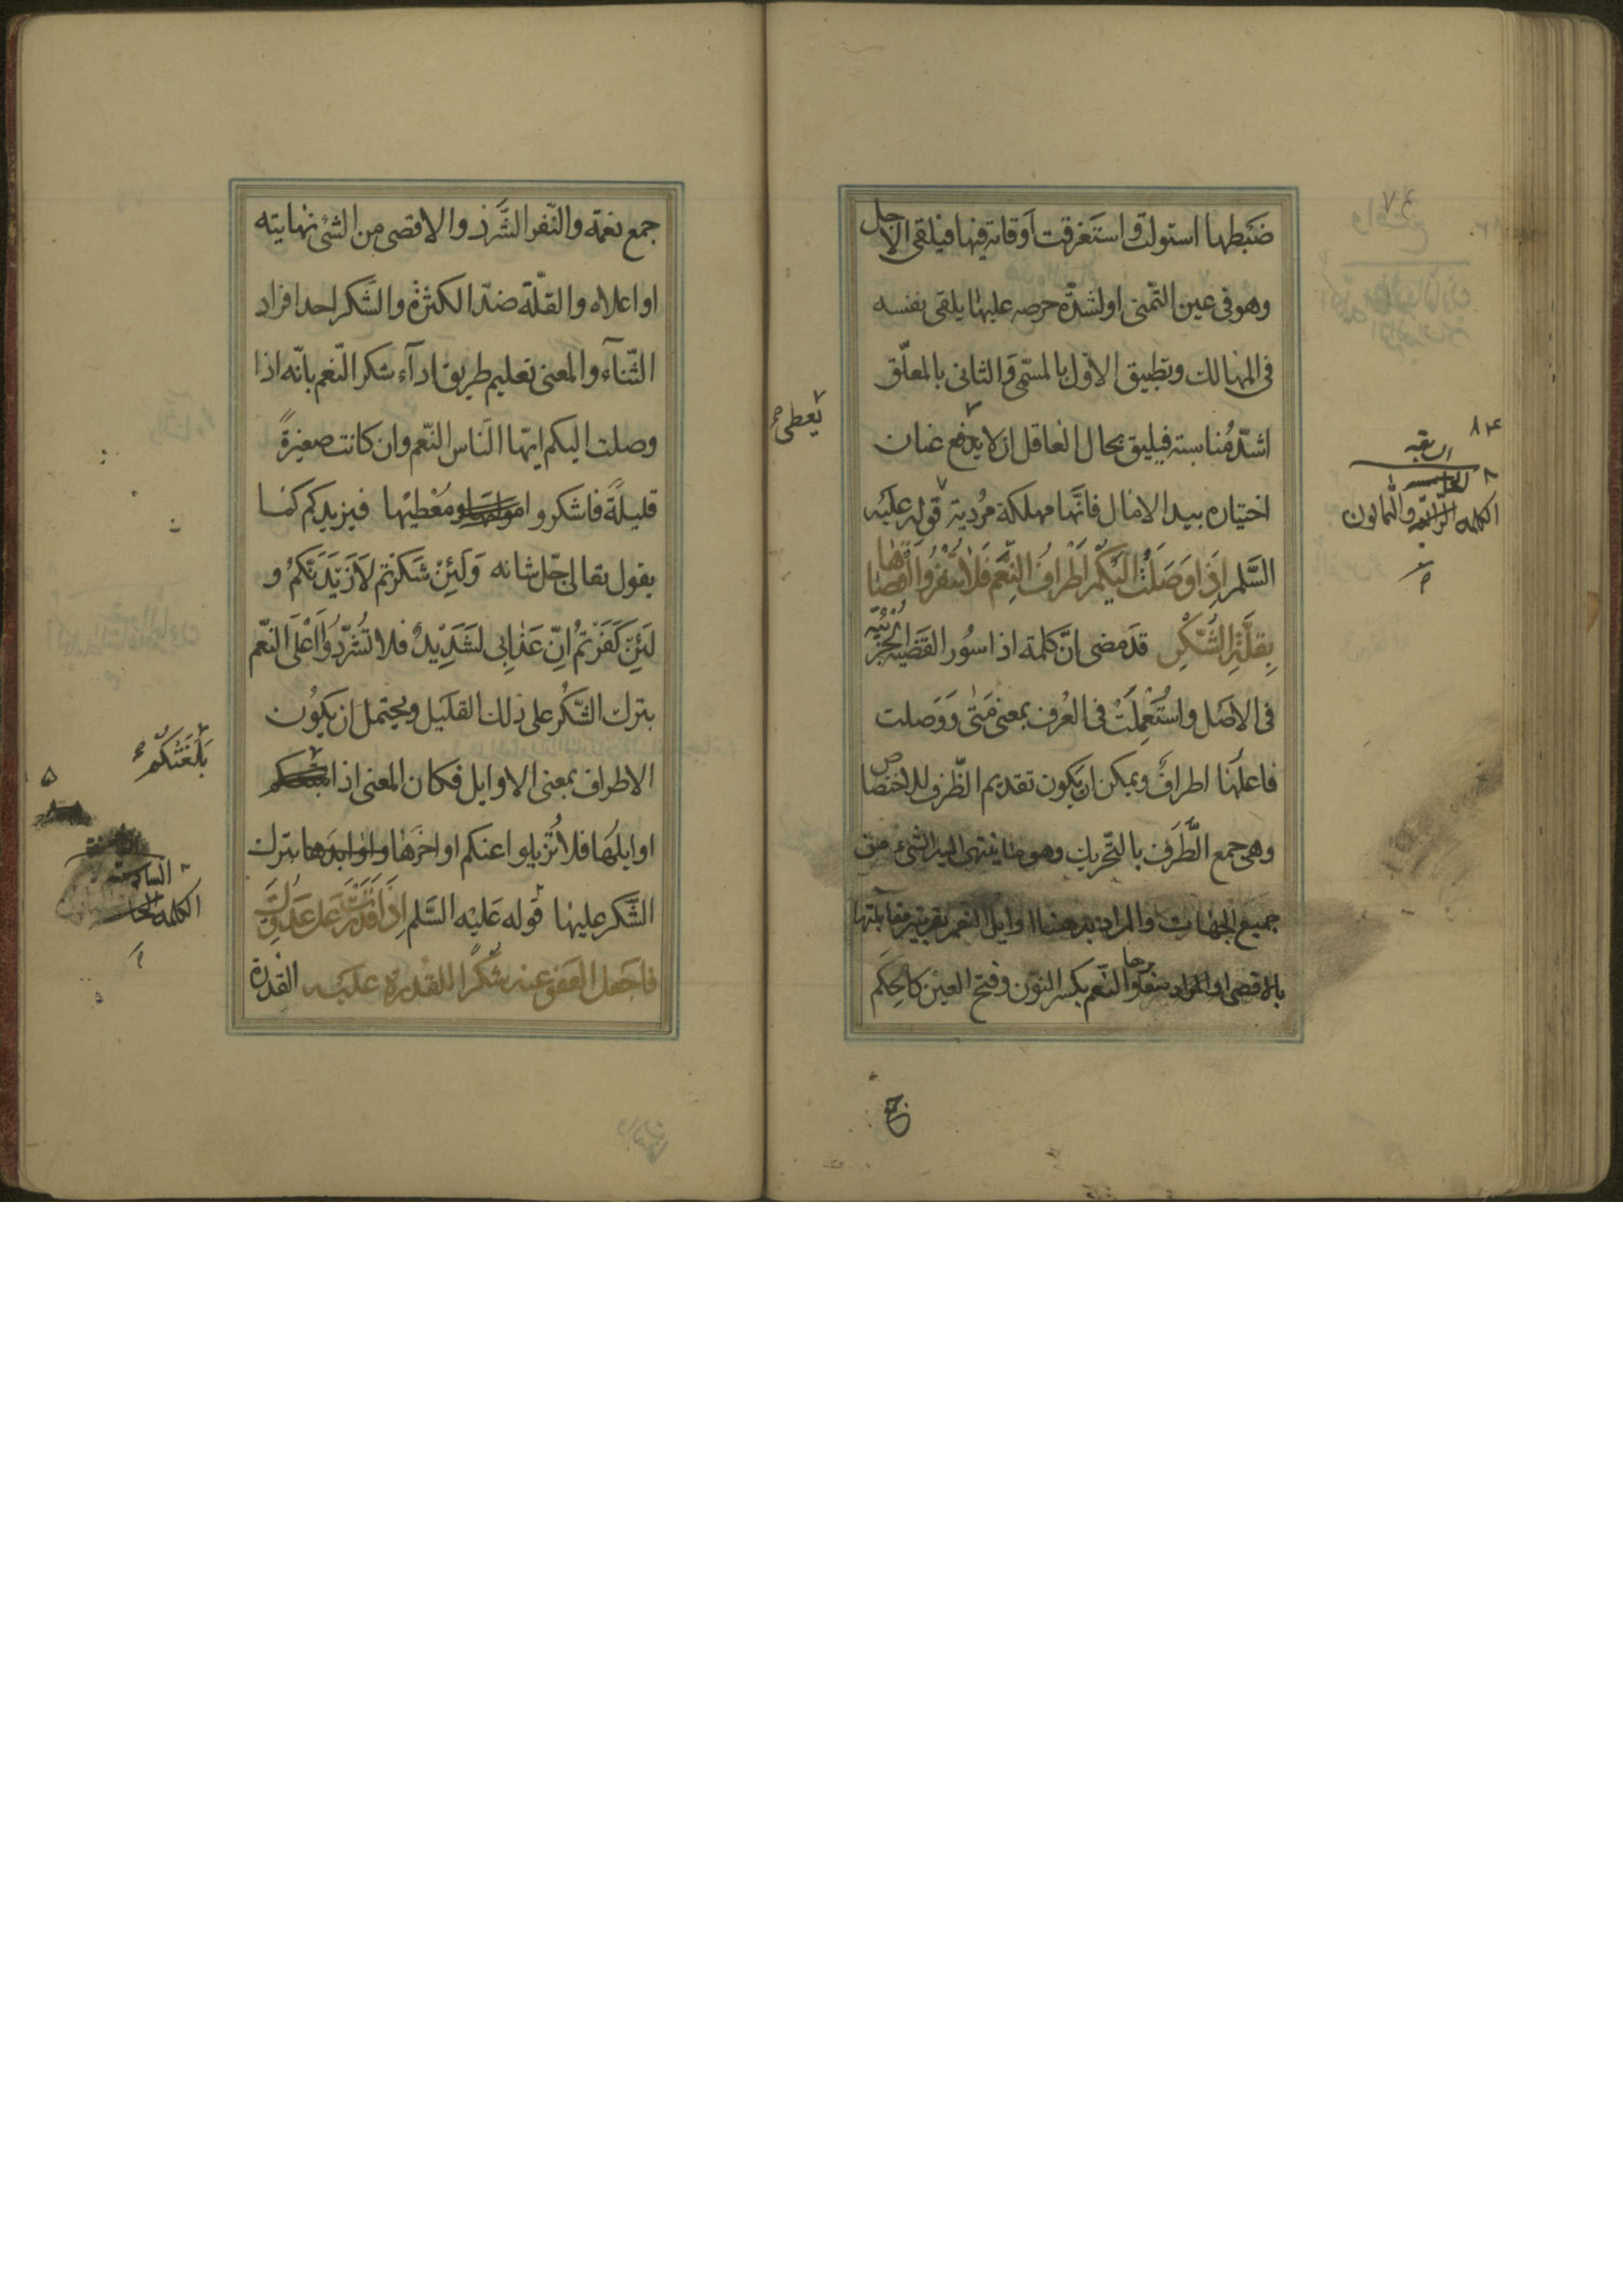 ضَبطها استولت واستَغرقت اَوقاته فيها فيلقى الاجل
وهو فى عين التّمنى او لشدّة حرصه عليها يلقى نفسه
فى المهالك وتطبيق الاوّل بالمسمّى وَالثانى بالمعلّق
اشدّ مُناسبته فيليق بحال العاقل ان لا يدفع عنان
يُعطى
اختياره بيد الامال فانّها مهلكة مُردية قوله عليَه
السَّلم اِذَا وَصَلَتْ اِلَيْكُمْ اَطْرَافُ النِّعَمِ فَلاٰ تُنَفِّرُوا اَقْصٰاهٰا
بِقِلَّةِ الشُّكْرِ قدَ مضى انّ كلمة اذا سُور القَضية الجُزئيّه
فى الاصَل واستُعْمِلَتْ فى العُرف بمعنى مَتٰى وَوَصلت
فاعلهَا اطرافٌ ويمكن ان يَكون تقديم الظّرف للاختصاص
وهى جمع الطَّرَف بالتّحريك وهو ما ينتهى اليه الشئ من
جميع الجهات والمراد به هنا اوايل النعم بقرينة مقابلتها
بالاقصى النّعم بكسر النوّن وفتح العين كالحِكَم
٨٤
الكلمه الرّابعه والثمانون
جمع نعمَة والنّفر الشَّرَد والاقصى من الشئ نهايته
او اعلاه والقلّة ضدّ الكثرة والشّكر احد افراد
الثّنآء والمعنى تعليم طريق ادآء شكر النّعم بانّه اذا
وصلت اليكم ايّها النّاس النّعم وان كانت صغيرةً
قليلةً فاشكروا ومُعْطيْها فيزيدكم كما
يقول تعالى جّل شانه وَلَئِنْ شَكَرْتمْ لَاَزَيدَنّكمُ و
لَئِنْ كَفَرْتمُ انِّ عَذابِى لَشَدِيدٌ فلا تُشَرِّدُوا اَعْلَى النّعَم
بترك الشّكُر على ذلك القلَيل ويحتمل ان يَكُون
الاطراف بمعنى الاوايل فكان المعنى اذا
بَلَغَتْكُمْ
اوايلهَا فلا تُزيلوا عنكم اواخرَها بترك
الشّكر عليها قوله عَليْه السَّلم اِذَا قَدَرْتَ عَلىٰ عَدُوِّكَ
فاجَعل العَفوَ عنه شُكرًا للقُدرة عليَه القُدرة
الكلمه
السادسه